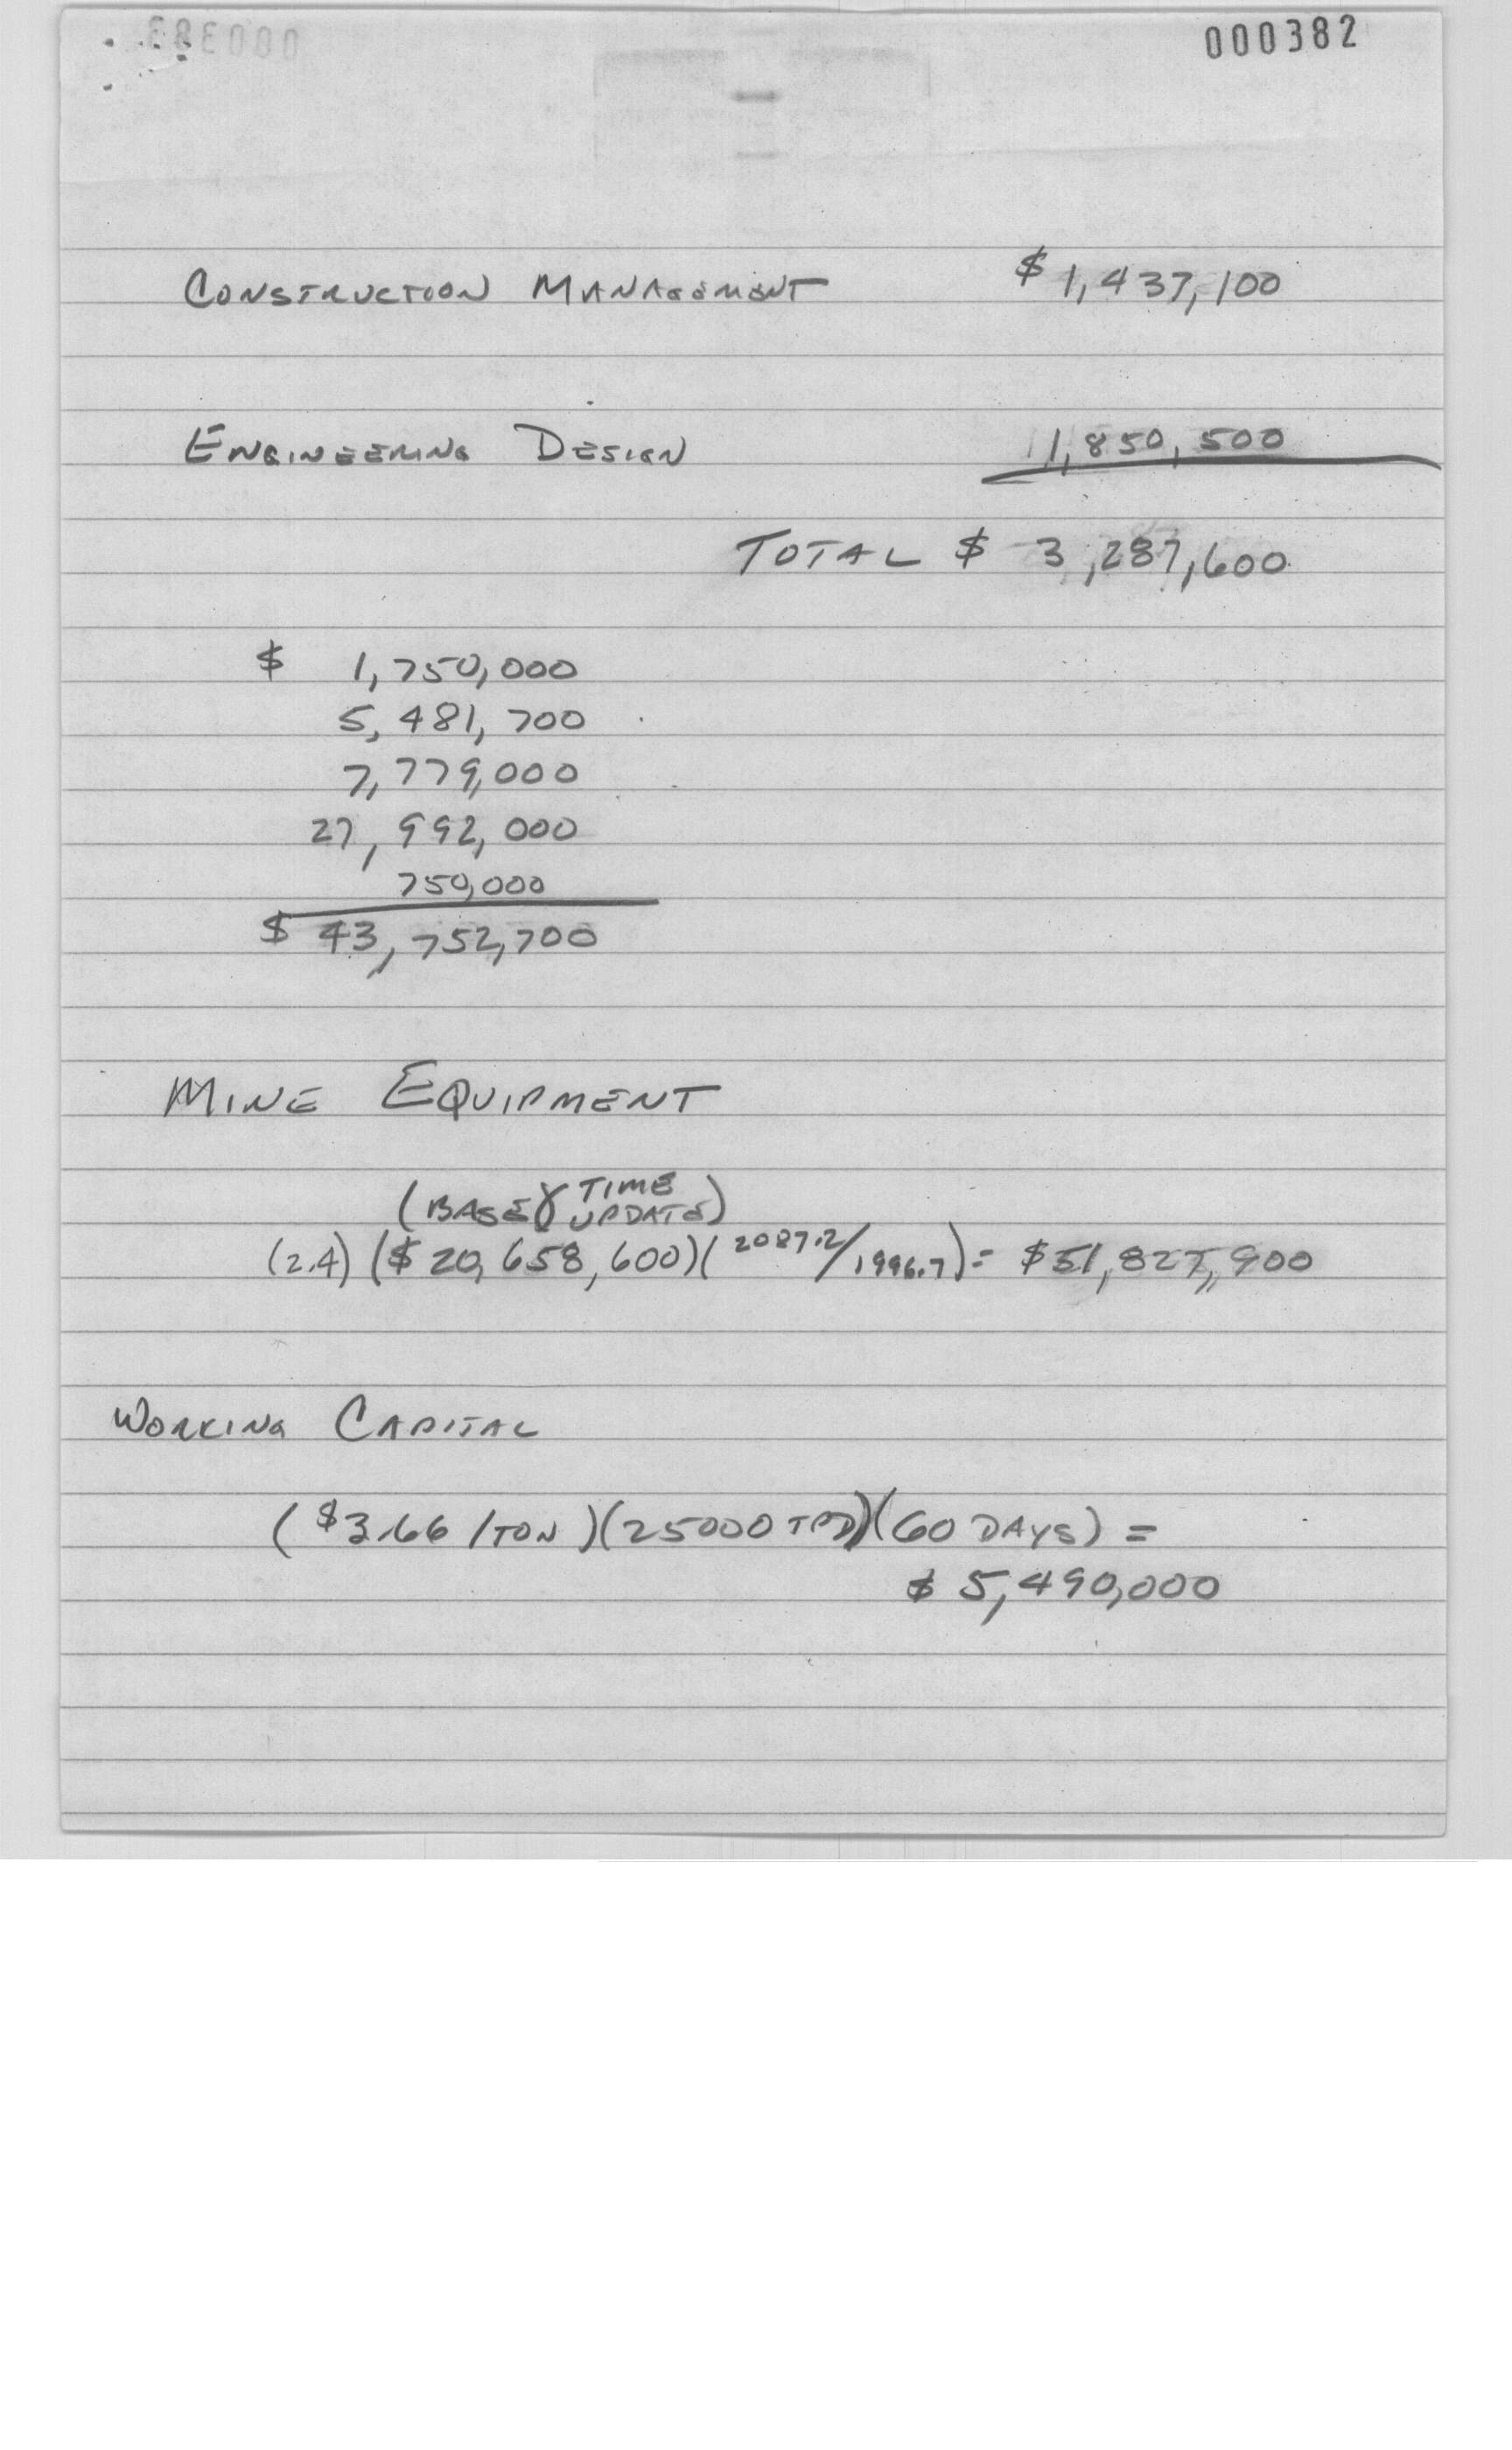 000382
CONSTRUCTION MANAGEMENT $ 1,437,100
ENGINEERING DESIGN 1,850,500
TOTAL $ 3,287,600
$ 1,750,000
5,481,700
7,779,000
27,992,000
750,000
$ 43,752,700
MINE EQUIPMENT
(BASE)(TIME UPDATE)
(2.4) ($ 20,658,600)(2087.2/1996.7) = $51,827,900
WORKING CAPITAL
($3.66/TON)(25000 TPD)(60 DAYS) =
$ 5,490,000